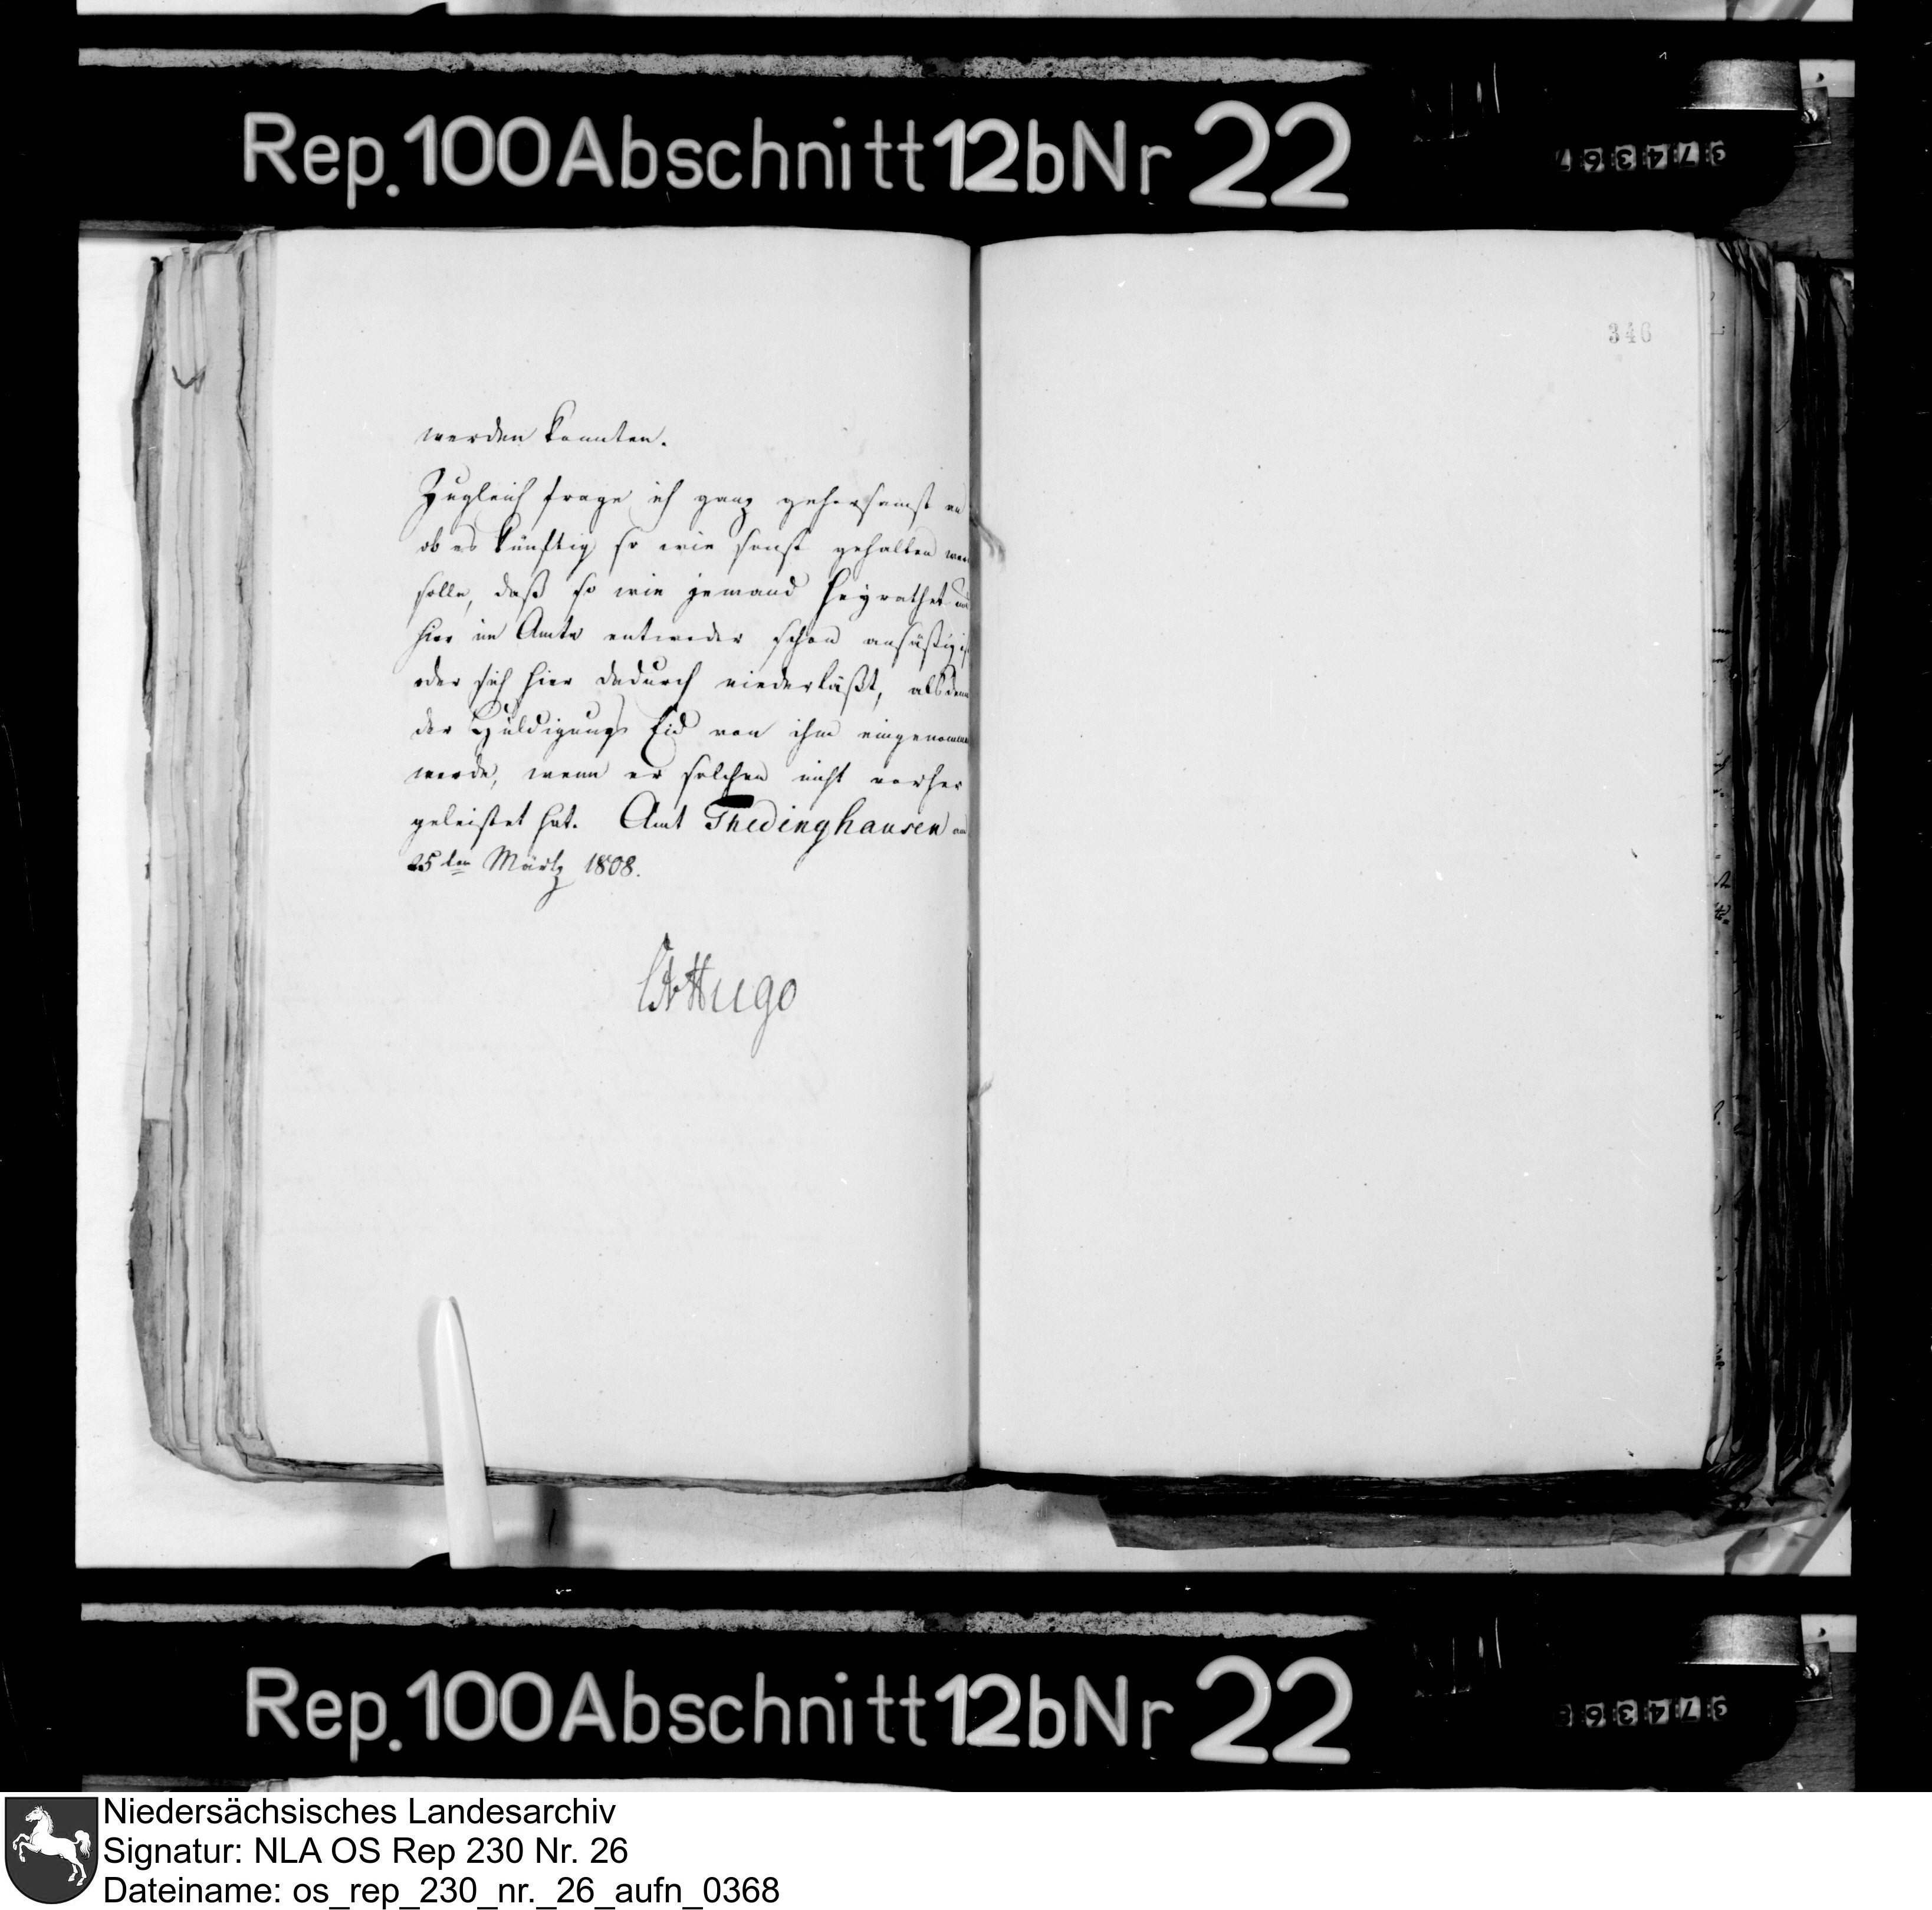 Rep. 100 Abschnitt 12b Nr 22
346
werden konnten.
Zugleich frage ich ganz gehorsamst an
ob es künftig so wie sonst gehalten
solle, daß so wie jemand heyrathet und
hier im Amte entweder schon ansäßig ist
oder sich hier dadurch niederläßt, alsdenn
der Huldigungs Eid von ihm eingenommen
werde, wenn er solchen nicht vorher
geleistet hat. Amt Thedinghausen
25ten Märtz 1808.
Hugo
Rep. 100 Abschnitt 12b Nr 22
Niedersächsisches Landesarchiv
Signatur: NLA OS Rep 230 Nr. 26
Dateiname: os_rep_230_nr._26_aufn_0368